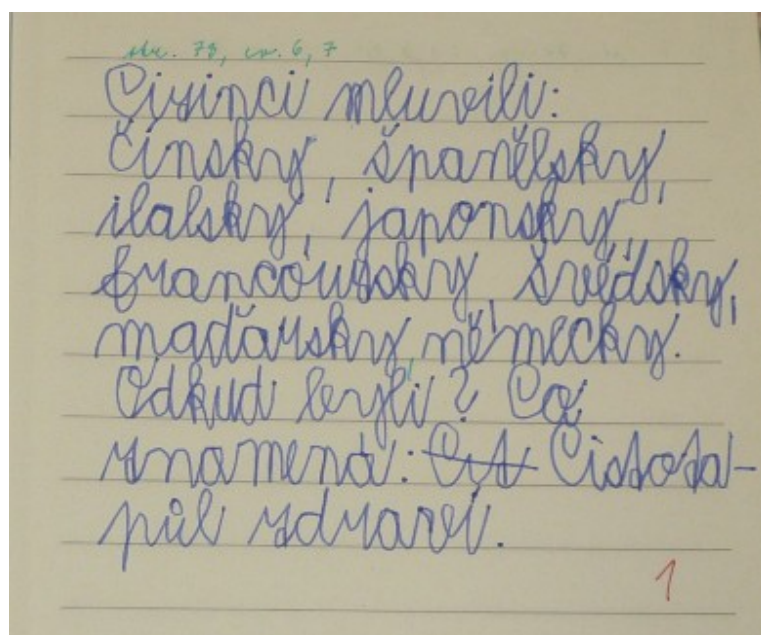 str. 78, cv. 6, 7
Cizinci mluvili:
čínsky, španělsky,
italsky, japonsky,
francouzsky, švédsky,
maďarsky, německy.
Odkud byli? Co
znamená: Čist Čistota-
půl zdraví.
1